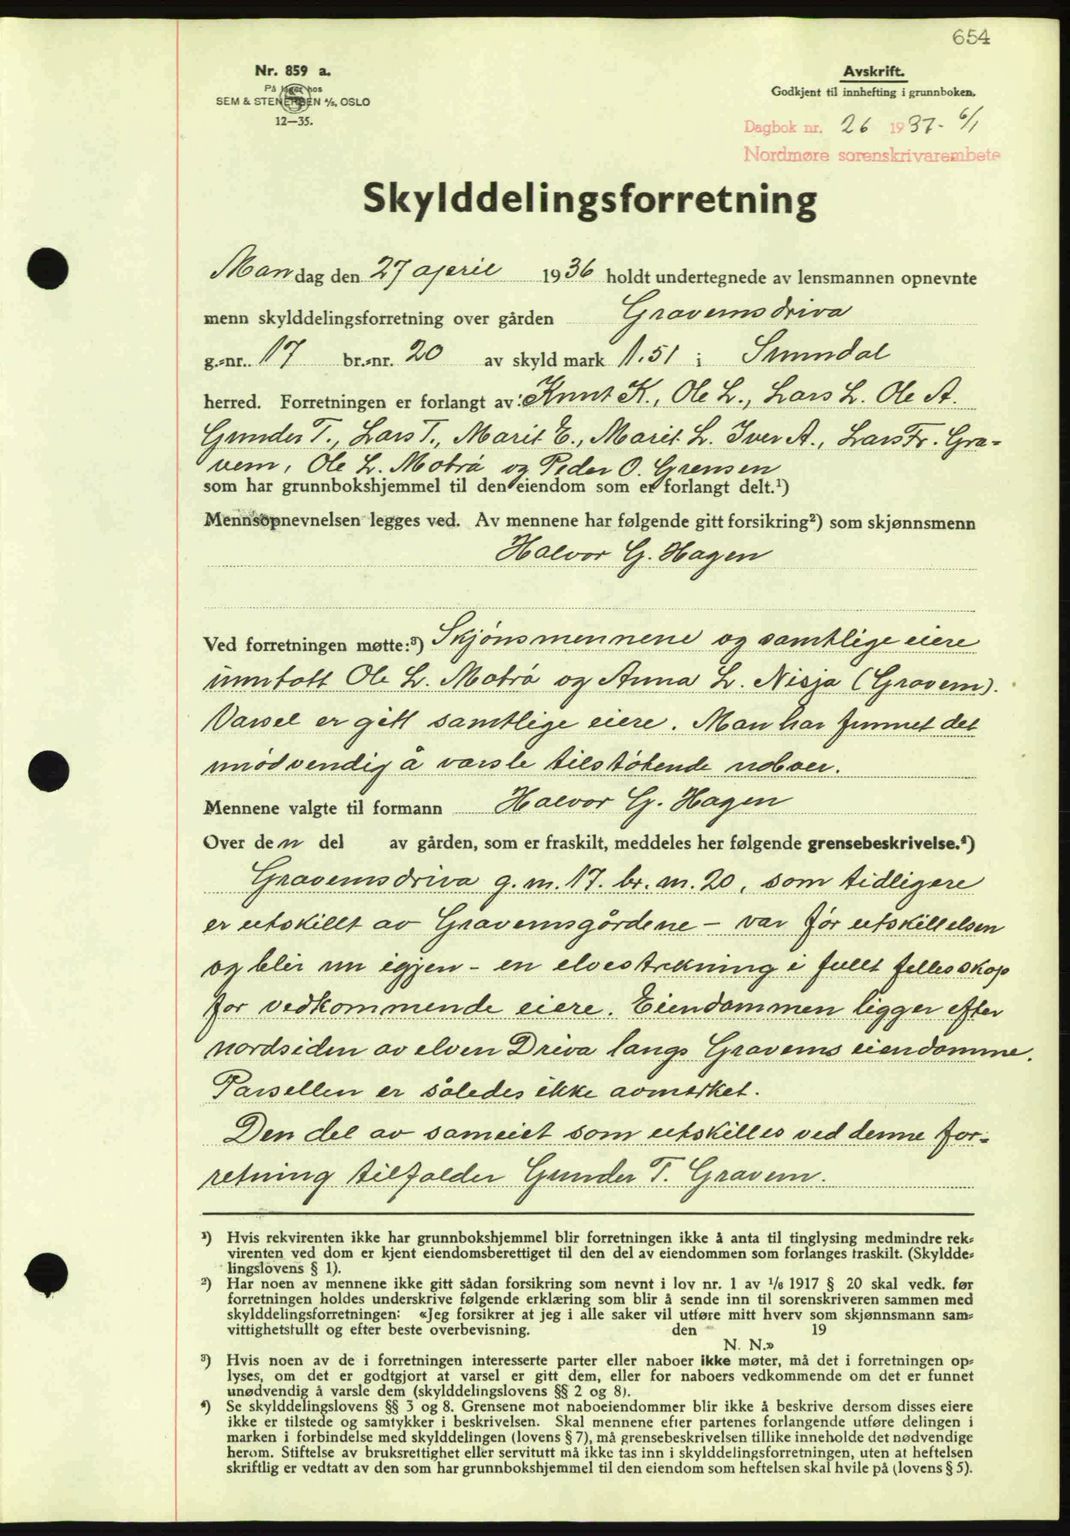 654
Nr. 859 a.
På lager hos
SEM & STENERSEN A/S, OSLO
12—35.
Avskrift.
Godkjent til innhefting i grunnboken.
Dagbok nr. 26 1937- 6/1
Nordmøre sorenskrivarembete
Skylddelingsforretning
Mandag den 27 april 1936 holdt undertegnede av lensmannen opnevnte
menn skylddelingsforretning over gården Gravemsdriva
g.-nr. 17 br.-nr. 20 av skyld mark 1.51 i Sunndal
herred. Forretningen er forlangt av: Knut K., Ole L., Lars L. Ole A.
Gunder T., Lars T., Marit E., Marit L. Iver A., Lars Fr. Gra-
vem, Ole L. Mobrå og Peder O. Grensen
som har grunnbokshjemmel til den eiendom som er forlangt delt.¹)
Mennsopnevnelsen legges ved. Av mennene har følgende gitt forsikring²) som skjønnsmenn
Halvor G. Hagen
Ved forretningen møtte:³) Skjönsmennene og samtlige eiere
unntatt Ole L. Mobrå og Anna L. Nisja (Gravem).
Varsel er gitt samtlige eiere. Man har funnet det
unödvendig å varsle tilstötende naboer.
Mennene valgte til formann Halvor G. Hagen
Over den del av gården, som er fraskilt, meddeles her følgende grensebeskrivelse.⁴)
Gravemsdriva g.nr. 17. br.nr. 20, som tidligere
er utskillt av Gravemsgårdene - var för utskillelsen
og blir nu igjen - en elvestrekning i fullt fellesskap
for vedkommende eiere. Eiendommen ligger efter
nordsiden av elven Driva langs Gravems eiendomme.
Parsellen er således ikke avmerket.
Den del av sameiet som utskilles ved denne for-
retning tilfaller Gunder T. Gravem.
¹) Hvis rekvirenten ikke har grunnbokshjemmel blir forretningen ikke å anta til tinglysing medmindre rek-
virenten ved dom er kjent eiendomsberettiget til den del av eiendommen som forlanges fraskilt. (Skyldde-
lingslovens § 1).
²) Har noen av mennene ikke gitt sådan forsikring som nevnt i lov nr. 1 av 1/6 1917 § 20 skal vedk. før
forretningen holdes underskrive følgende erklæring som blir å sende inn til sorenskriveren sammen med
skylddelingsforretningen: «Jeg forsikrer at jeg i alle saker vil utføre mitt hverv som skjønnsmann sam-
vittighetsfullt og efter beste overbevisning. den 19
N. N.»
³) Hvis noen av de i forretningen interesserte parter eller naboer ikke møter, må det i forretningen op-
lyses, om det er godtgjort at varsel er gitt dem, eller for naboers vedkommende om det er funnet
unødvendig å varsle dem (skylddelingslovens §§ 2 og 8).
⁴) Se skylddelingslovens §§ 3 og 8. Grensene mot naboeiendommer blir ikke å beskrive dersom disses eiere
ikke er tilstede og samtykker i beskrivelsen. Skal mennene efter partenes forlangende utføre delingen i
marken i forbindelse med skylddelingen (lovens § 7), må grensebeskrivelsen tillike inneholde det nødvendige
herom. Stiftelse av bruksrettighet eller servitutt må ikke tas inn i skylddelingsforretningen, uten at heftelsen
skriftlig er vedtatt av den som har grunnbokshjemmel til den eiendom som heftelsen skal hvile på (lovens § 5).